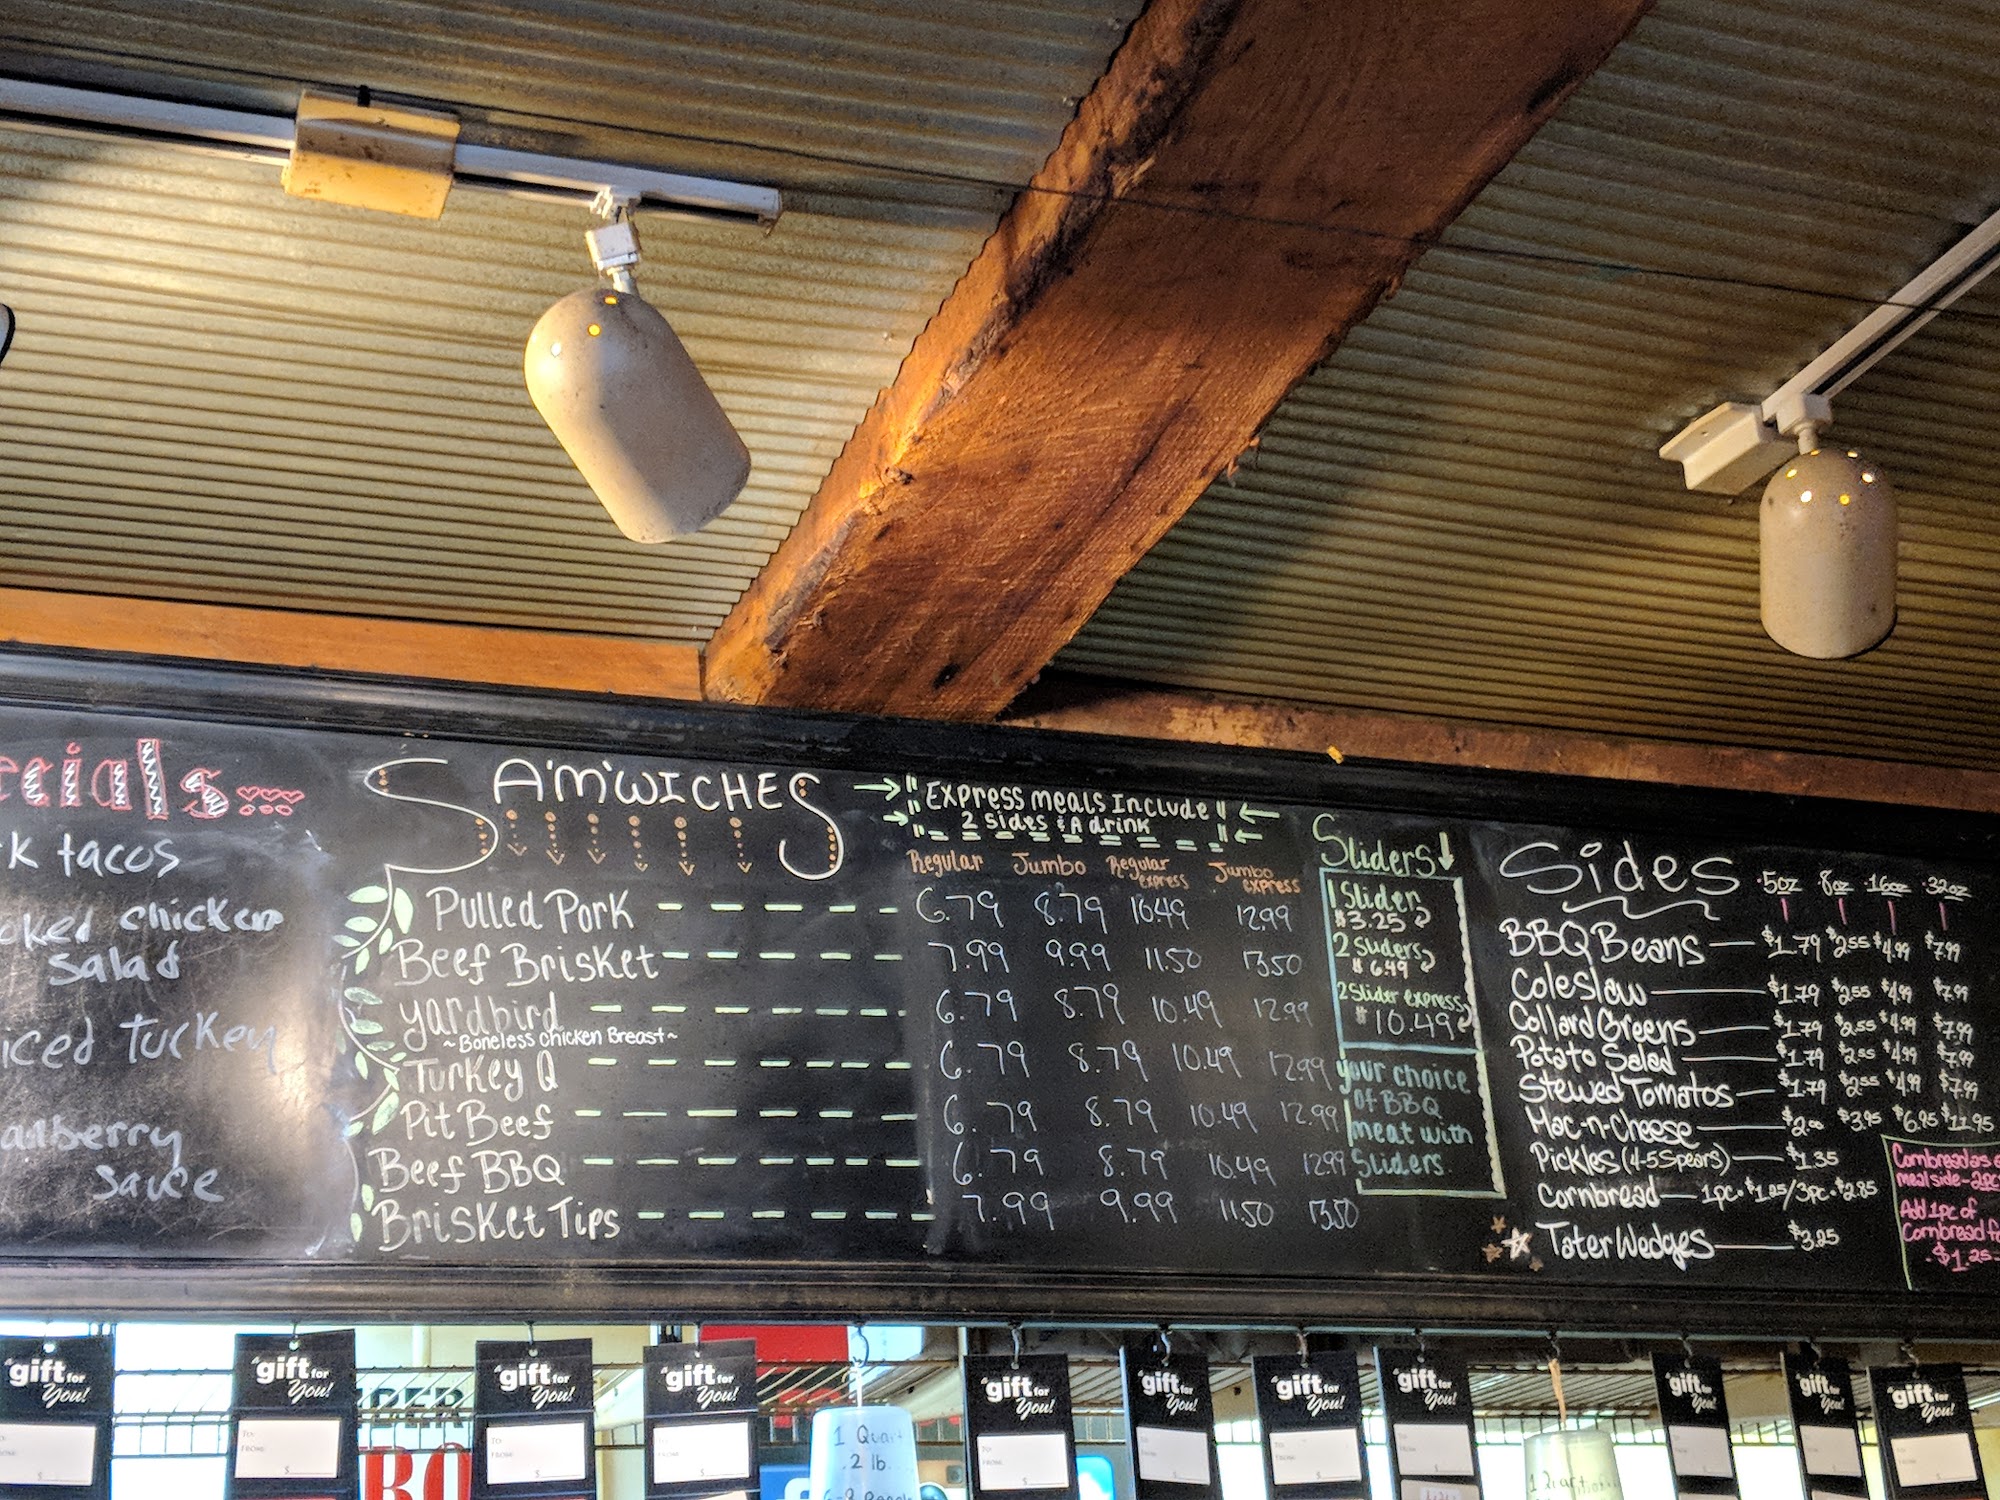 tacos
chicken
salad
Turkey
sauce
SA'M'WICHES
Express meals Include
2 sides & A drink
Regular Jumbo Regular express Jumbo express
Pulled Pork 6.79 8.79 10.49 12.99
Beef Brisket 7.99 9.99 11.50 13.50
yardbird 6.79 8.79 10.49 12.99
~Boneless chicken Breast~
Turkey Q 6.79 8.79 10.49 12.99
Pit Beef 6.79 8.79 10.49 12.99
Beef BBQ 6.79 8.79 10.49 12.99
Brisket Tips 7.99 9.99 11.50 13.50
Sliders
1 Slider
$3.25
2 Sliders
$6.49
2 Slider express
$10.49
your choice
of BBQ
meat with
Sliders
Sides 5oz 8oz 16oz 32oz
BBQ Beans $1.79 $2.55 $4.99 $7.99
Coleslaw $1.79 $2.55 $4.99 $7.99
Collard Greens $1.79 $2.55 $4.99 $7.99
Potato Salad $1.79 $2.55 $4.99 $7.99
Stewed Tomatos $1.79 $2.55 $4.99 $7.99
Mac-n-Cheese $2.00 $3.95 $6.95 $11.95
Pickles (4-5 Spears) $1.35
Cornbread 1pc. $1.25/3pc. $2.85
Tater Wedges $3.25
Cornbread as
meal side-2pc
Add 1pc of
Cornbread
$1.25
a gift for You!
TO:
FROM:
$
a gift for You!
TO:
FROM:
$
a gift for You!
TO:
FROM:
$
a gift for You!
TO:
FROM:
$
1 Quart
2 lb.
a gift for You!
TO:
FROM:
$
a gift for You!
a gift for You!
a gift for You!
a gift for You!
a gift for You!
a gift for You!